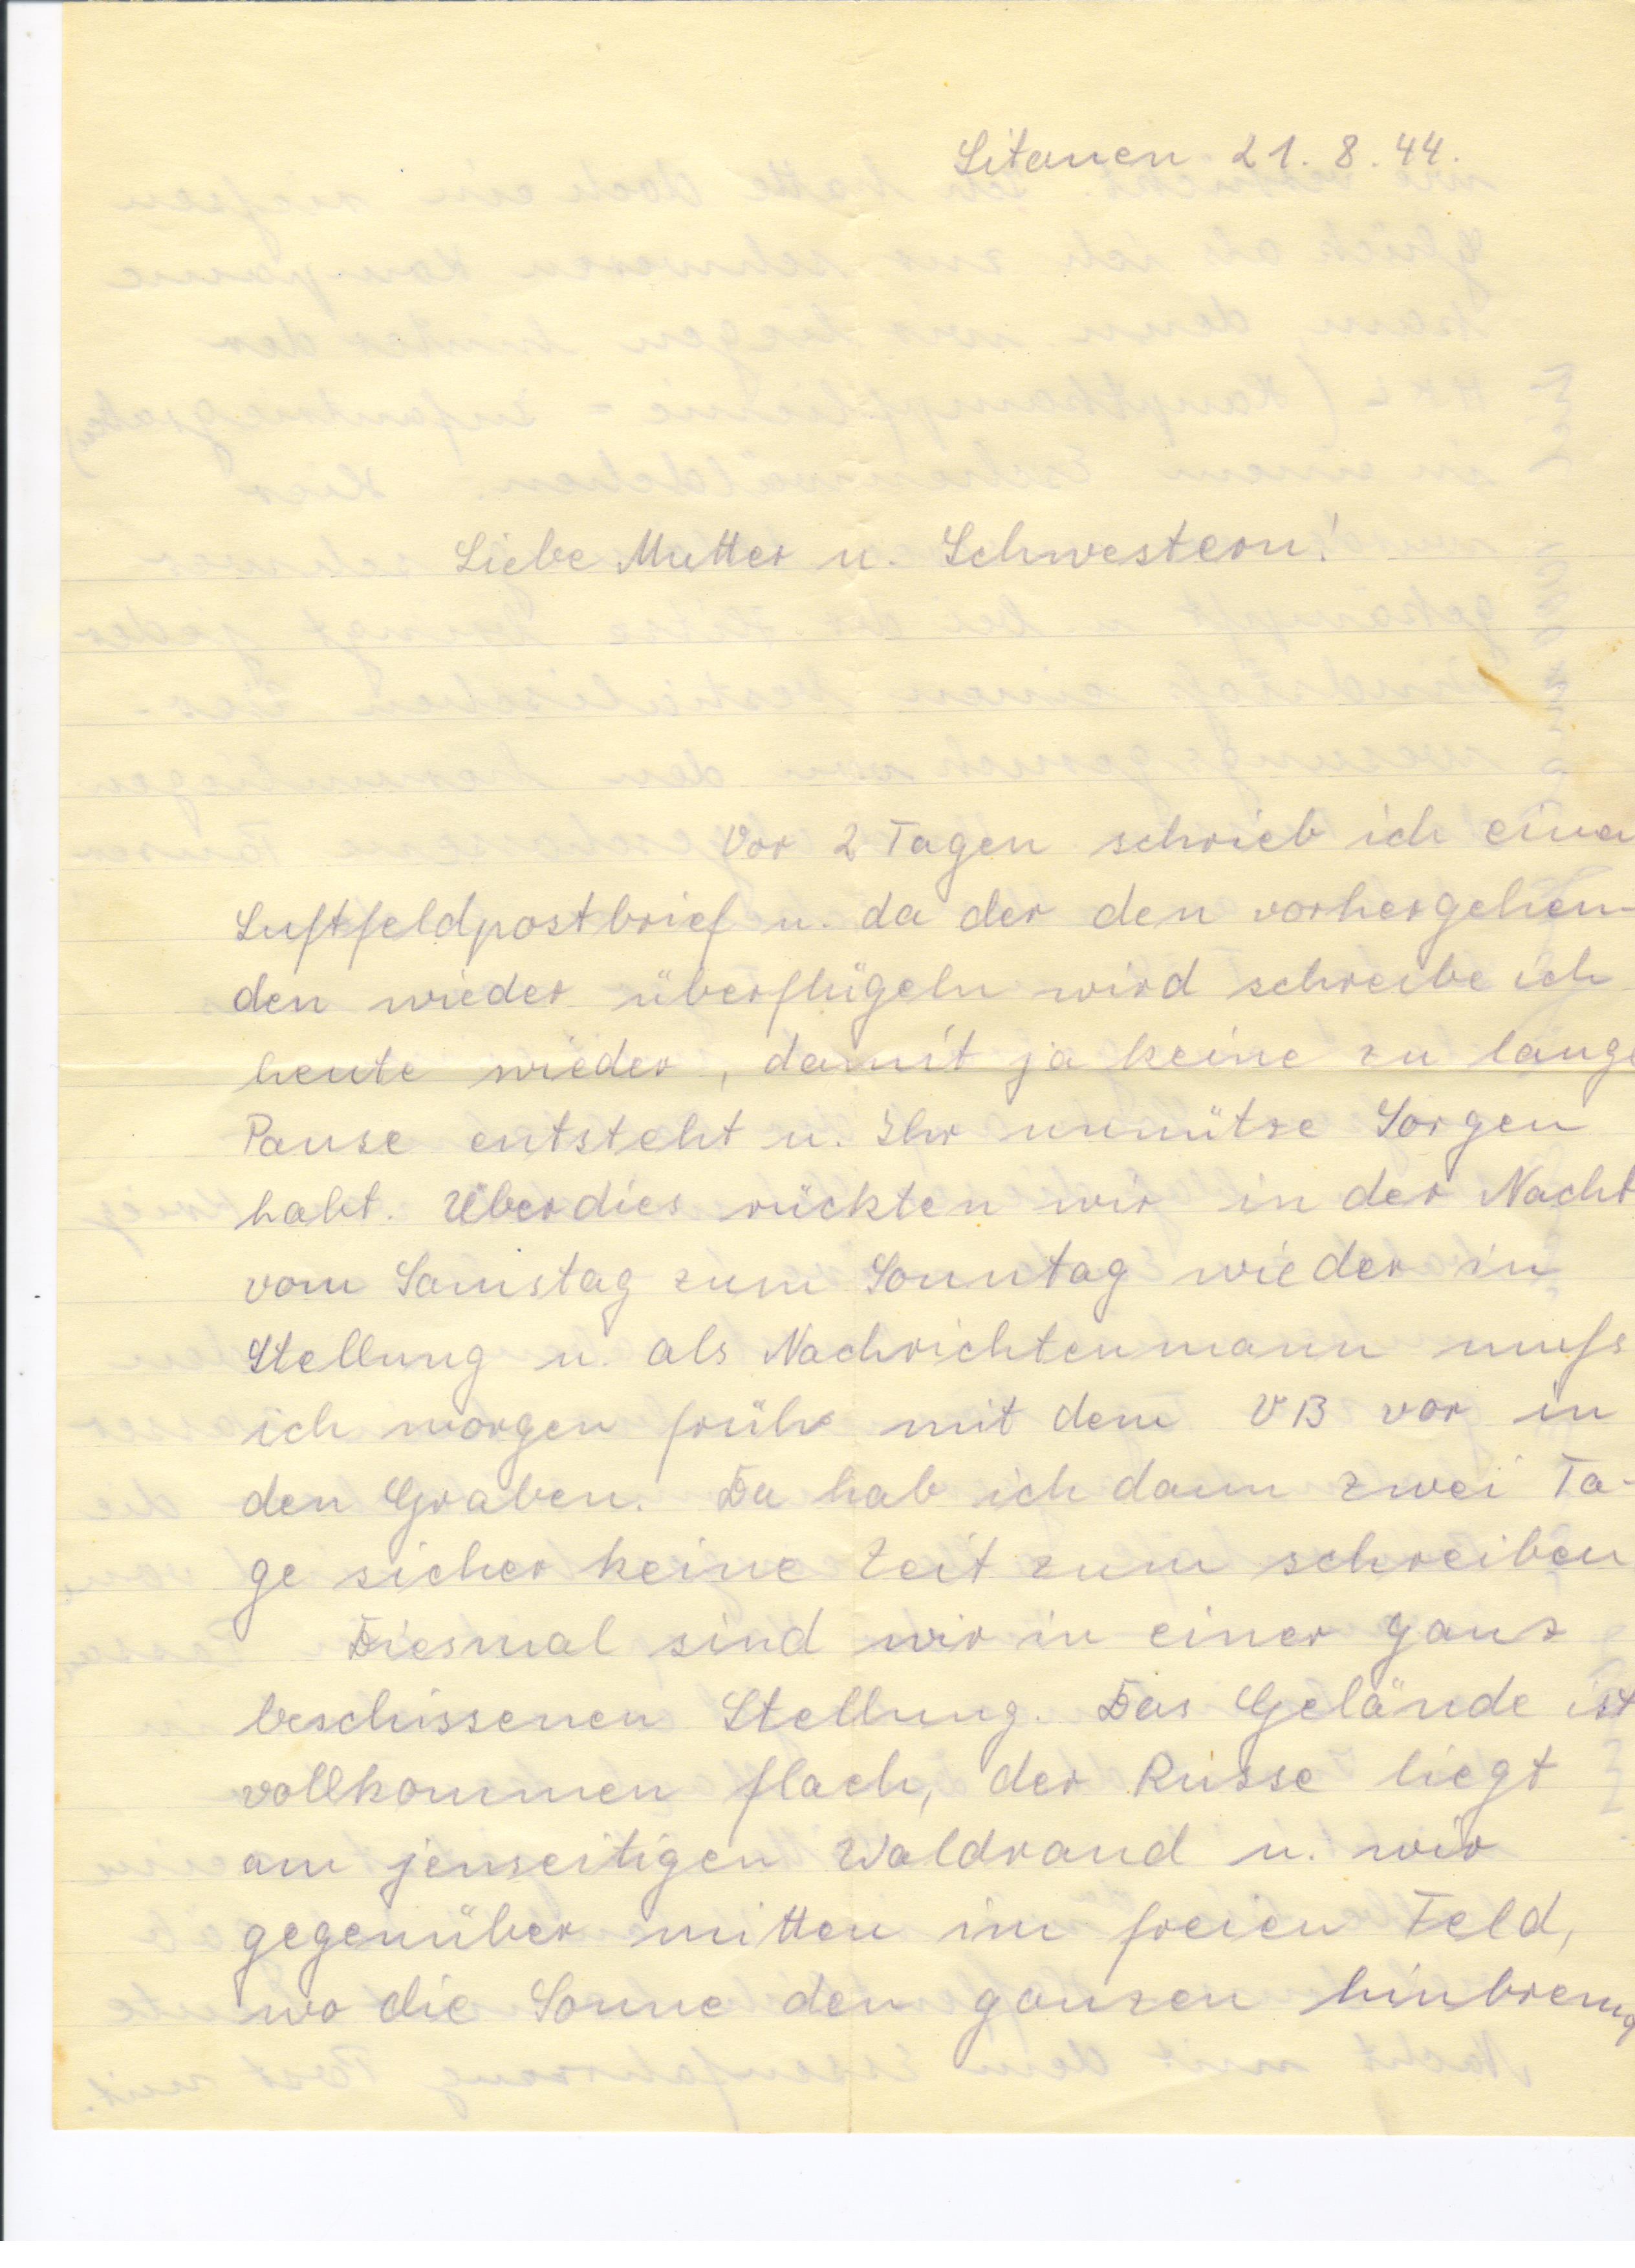 Litauen 21. 8. 44.
Liebe Mutter u. Schwestern!
Vor 2 Tagen schrieb ich einen
Luftfeldpostbrief u. da der den vorhergehen-
den wieder überflügeln wird schreibe ich
heute wieder, damit ja keine zu lange
Pause entsteht u. Ihr unnütze Sorgen
habt. Überdies rückten wir in der Nacht
vom Samstag zum Sonntag wieder in
Stellung u. als Nachrichtenmann muſs
ich morgen früh mit dem VB vor in
den Graben. Da hab ich dann zwei Ta-
ge sicher keine Zeit zum schreiben
Diesmal sind wir in einer ganz
beschissenen Stellung. Das Gelände ist
vollkommen flach, der Russe liegt
am jenseitigen Waldrand u. wir
gegenüber mitten im freien Feld,
wo die Sonne den ganzen hinbrennt